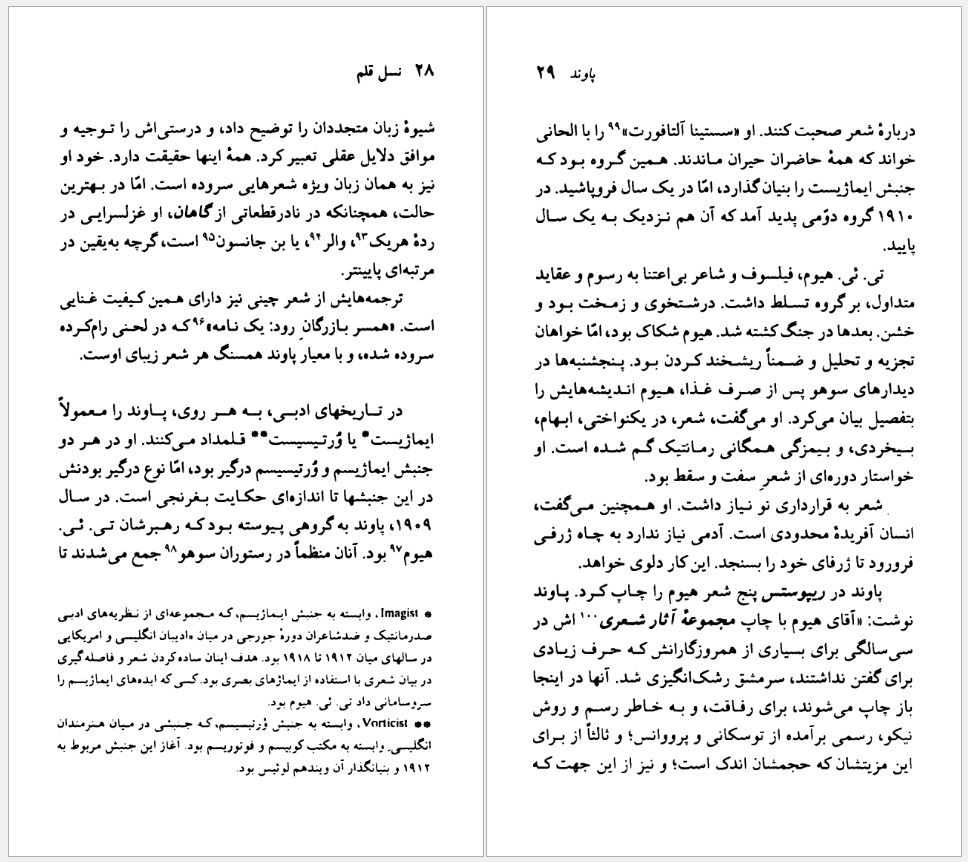 ۲۸ نسل قلم
شیوهٔ زبان متجددان را توضیح داد، و درستی‌اش را توجیه و
موافق دلایل عقلی تعبیر کرد. همهٔ اینها حقیقت دارد. خود او
نیز به همان زبان ویژه شعرهایی سروده است. امّا در بهترین
حالت، همچنانکه در نادرقطعاتی از گاهان، او غزلسرایی در
ردهٔ هریک۹۳، والر۹۴، یا بن جانسون۹۵ است، گرچه به‌یقین در
مرتبه‌ای پایینتر.
ترجمه‌هایش از شعر چینی نیز دارای همین کیفیت غنایی
است. «همسر بازرگانِ رود: یک نامه»۹۶ که در لحنی رام‌کرده
سروده شده، و با معیار پاوند همسنگ هر شعر زیبای اوست.
در تاریخهای ادبی، به هر روی، پاوند را معمولاً
ایماژیست* یا وُرتیسیست** قلمداد می‌کنند. او در هر دو
جنبش ایماژیسم و وُرتیسیسم درگیر بود، امّا نوع درگیر بودنش
در این جنبشها تا اندازه‌ای حکایت بغرنجی است. در سال
۱۹۰۹، پاوند به گروهی پیوسته بود که رهبرشان تی. ئی.
هیوم۹۷ بود. آنان منظماً در رستوران سوهو۹۸ جمع می‌شدند تا
* Imagist، وابسته به جنبش ایماژیسم، که مجموعه‌ای از نظریه‌های ادبی
ضدرمانتیک و ضدشاعران دورهٔ جورجی در میان «ادیبان انگلیسی و امریکایی
در سالهای میان ۱۹۱۲ تا ۱۹۱۸ بود. هدف اینان ساده‌کردن شعر و فاصله‌گیری
در بیان شعری با استفاده از ایماژهای بصری بود. کسی که ایده‌های ایماژیسم را
سروسامانی داد تی. ئی. هیوم بود.
** Vorticist، وابسته به جنبش وُرتیسیسم، که جنبشی در میان هنرمندان
انگلیسی، وابسته به مکتب کوبیسم و فوتوریسم بود. آغاز این جنبش مربوط به
۱۹۱۲ و بنیانگذار آن ویندهم لوئیس بود.
پاوند ۲۹
دربارهٔ شعر صحبت کنند. او «سستینا آلتافورت»۹۹ را با الحانی
خواند که همهٔ حاضران حیران ماندند. همین گروه بود که
جنبش ایماژیست را بنیان گذارد، امّا در یک سال فروپاشید. در
۱۹۱۰ گروه دوّمی پدید آمد که آن هم نزدیک به یک سال
پایید.
تی. ئی. هیوم، فیلسوف و شاعر بی‌اعتنا به رسوم و عقاید
متداول، بر گروه تسلط داشت. درشتخوی و زمخت بود و
خشن. بعدها در جنگ کشته شد. هیوم شکاک بود، امّا خواهان
تجزیه و تحلیل و ضمناً ریشخند کردن بود. پنجشنبه‌ها در
دیدارهای سوهو پس از صرف غذا، هیوم اندیشه‌هایش را
بتفصیل بیان می‌کرد. او می‌گفت، شعر، در یکنواختی، ابهام،
بیخردی، و بیمزگی همگانی رمانتیک گم شده است. او
خواستار دوره‌ای از شعرِ سفت و سقط بود.
شعر به قراردادی نو نیاز داشت. او همچنین می‌گفت،
انسان آفریدهٔ محدودی است. آدمی نیاز ندارد به چاه ژرفی
فرورود تا ژرفای خود را بسنجد. این کار دلوی خواهد.
پاوند در ریپوستس پنج شعر هیوم را چاپ کرد. پاوند
نوشت: «آقای هیوم با چاپ مجموعهٔ آثار شعری۱۰۰ اش در
سی‌سالگی برای بسیاری از همروزگارانش که حرف زیادی
برای گفتن نداشتند، سرمشق رشک‌انگیزی شد. آنها در اینجا
باز چاپ می‌شوند، برای رفاقت، و به خاطر رسم و روش
نیکو، رسمی برآمده از توسکانی و پرووانس؛ و ثالثاً از برای
این مزیتشان که حجمشان اندک است؛ و نیز از این جهت که